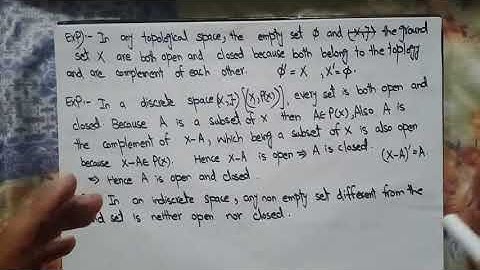 Exp):- In any topological space, the empty set ϕ and (X,J) the ground
set X are both open and closed because both belong to the toplogy
and are complement of each other. ϕ' = X , X' = ϕ.
Exp:- In a discrete space (X,J) [(X, P(X))], every set is both open and
closed. Because A is a subset of X then A∈P(X), Also A is
the complement of X-A, which being a subset of X is also open
because X-A∈ P(X). Hence X-A is open ⇒ A is closed. (X-A)' = A.
⇒ Hence A is open and closed.
In an indiscrete space, any non empty set different from the
set is neither open nor closed.